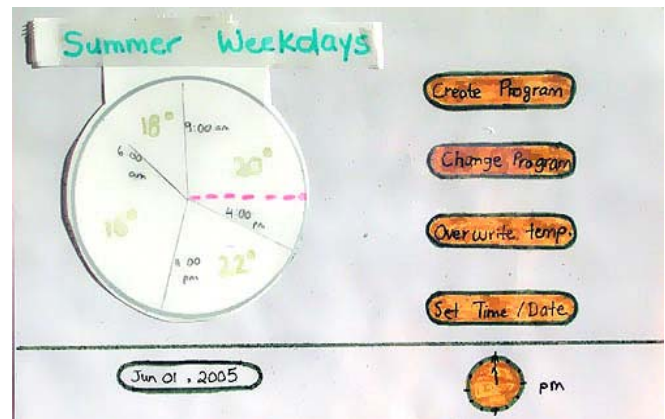 Summer Weekdays
18°
9:00 am
20°
6:00
am
4:00
pm
16°
:00
pm
22°
Create Program
Change Program
Overwrite temp.
Set Time/Date
Jun 01, 2005
pm